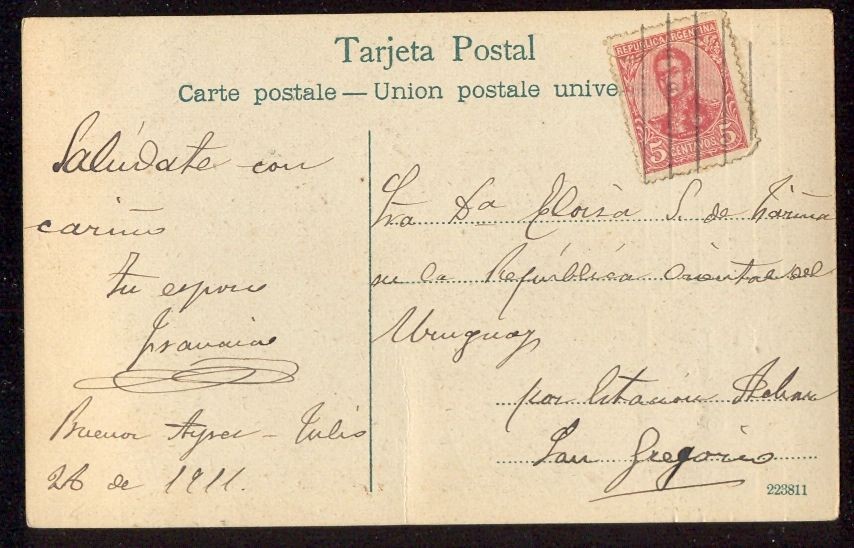 Tarjeta Postal
Carte postale — Union postale unive
REPUBLICA ARGENTINA
5 CENTAVOS 5
Salúdate con
cariño
tu esposo
Buenos Ayres - Julio
26 de 1911.
Sra Dª Eloisa S. de
en la República Oriental del
Uruguay
por Estación
San Gregorio
223811